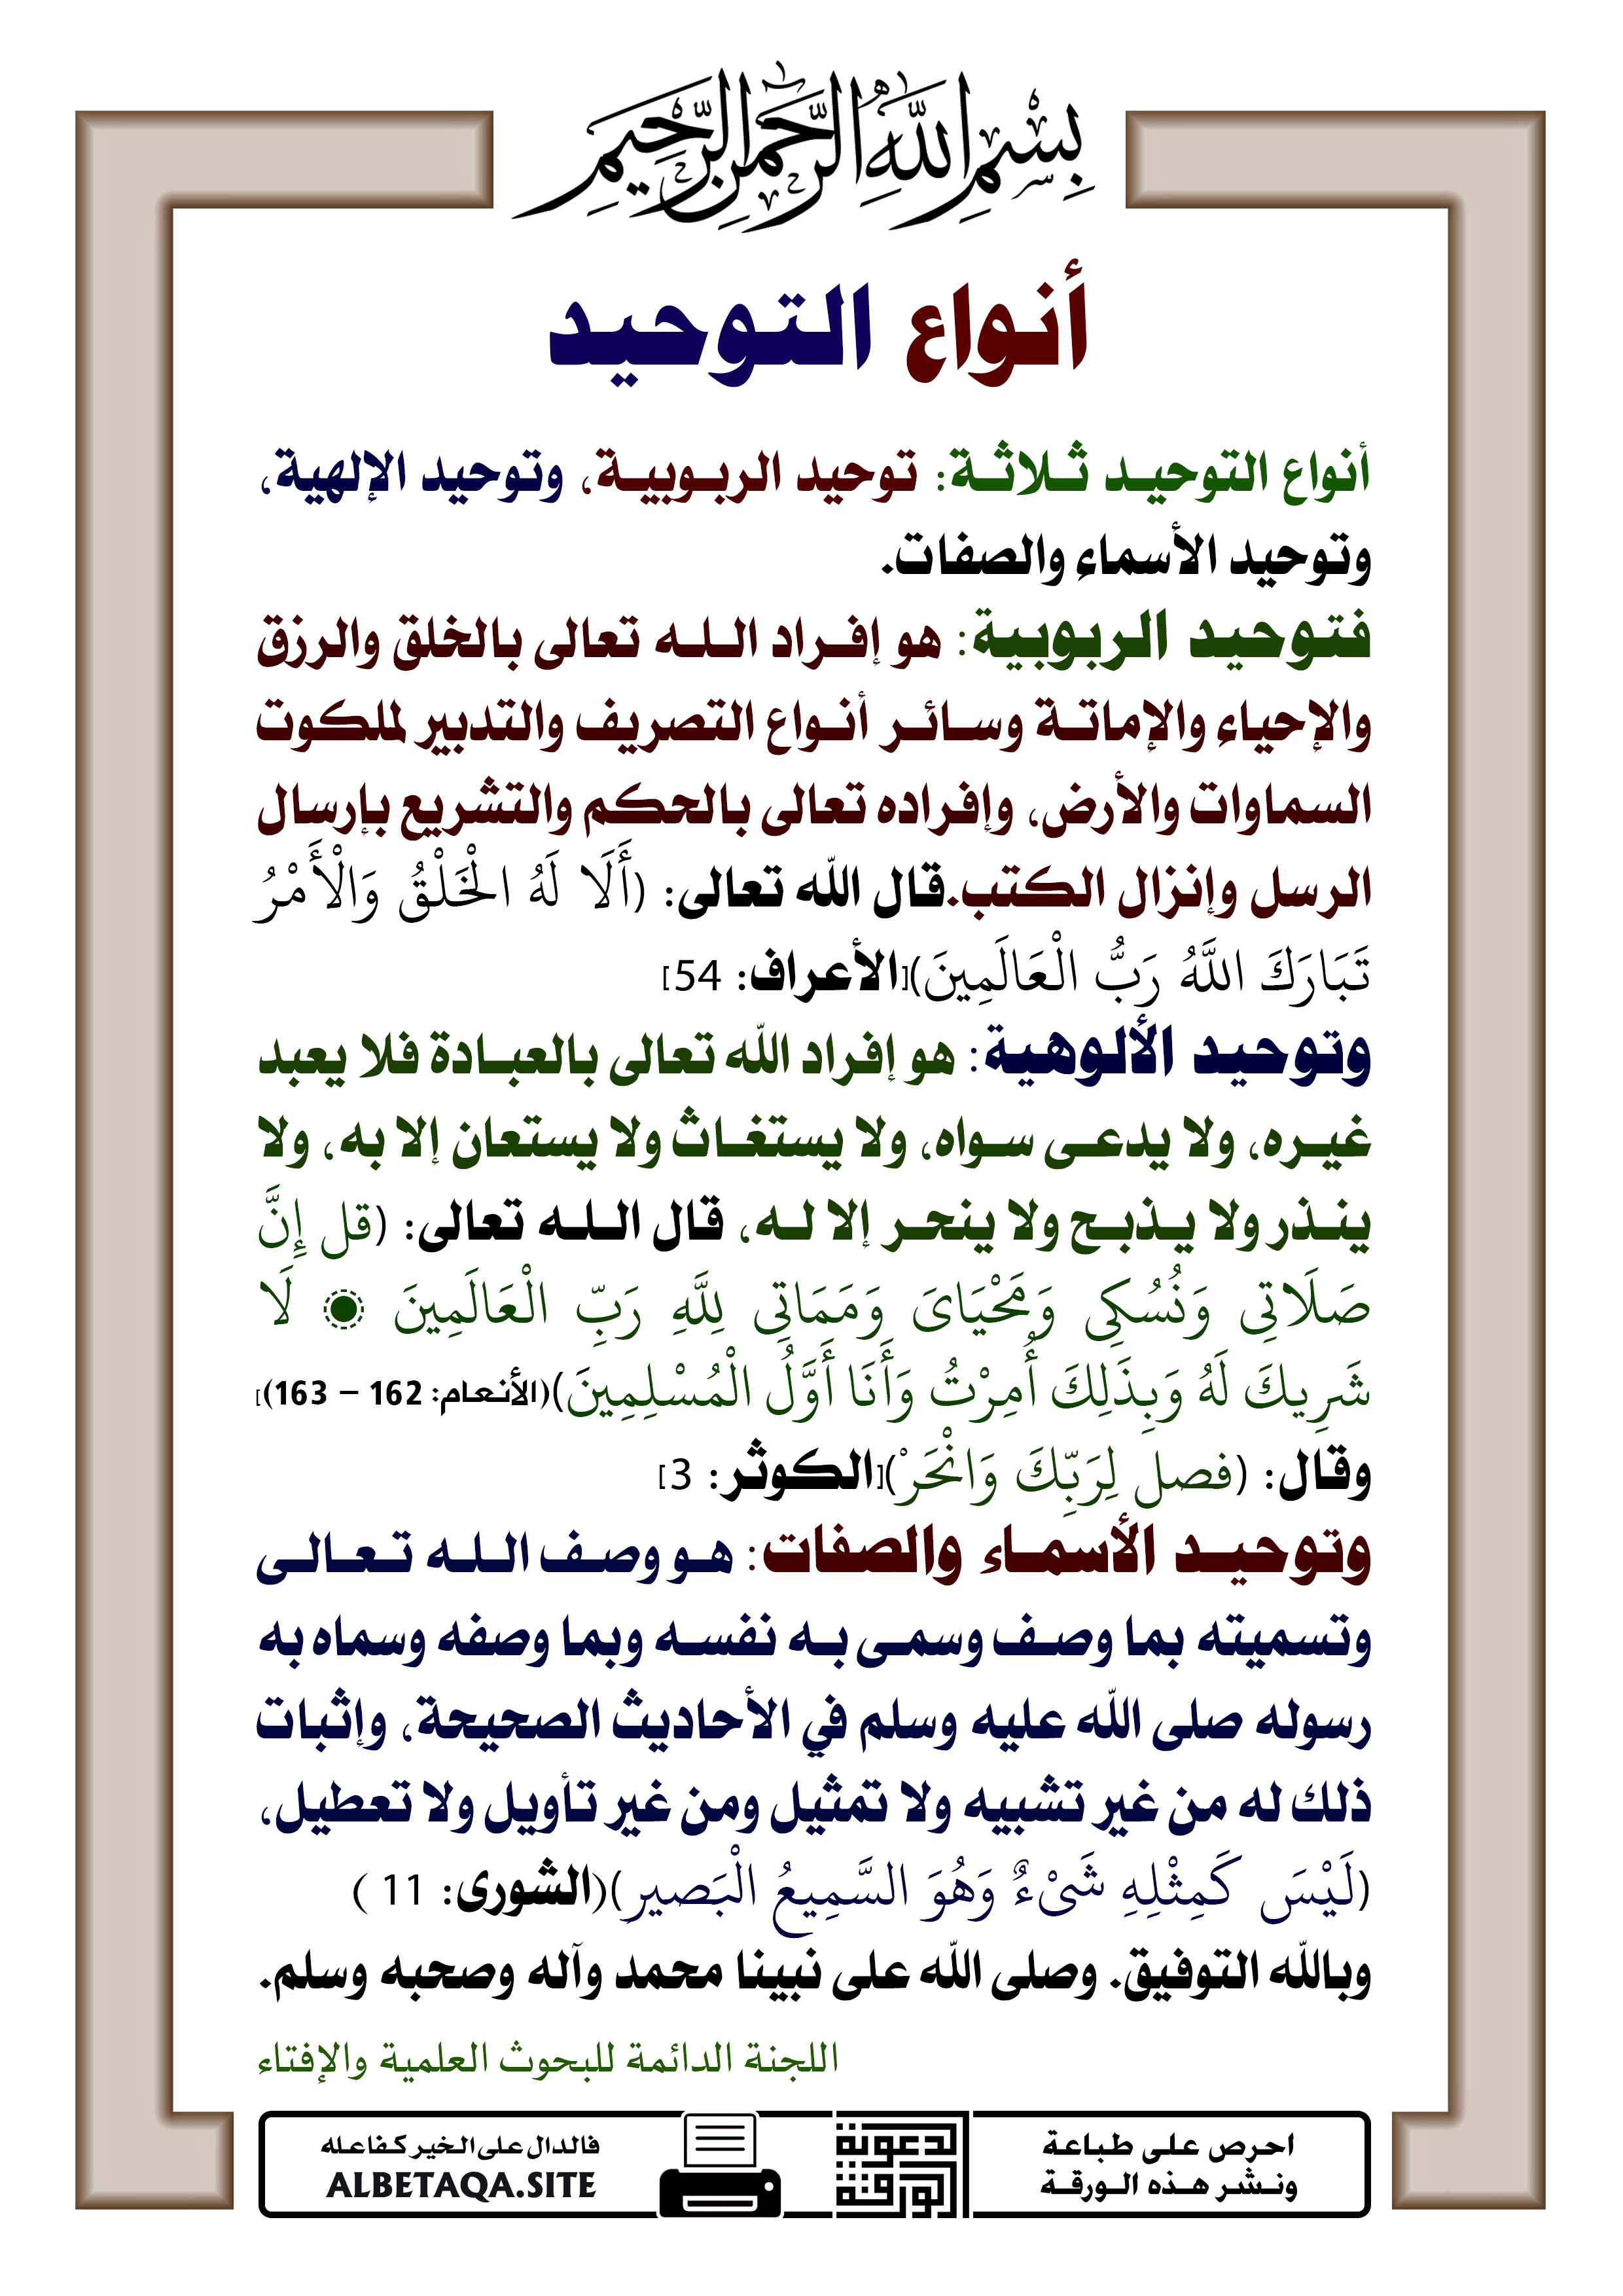 بِسْمِ اللَّهِ الرَّحْمَٰنِ الرَّحِيمِ
أنواع التوحيد
أنواع التوحيد ثلاثة: توحيد الربوبية، وتوحيد الإلهية،
وتوحيد الأسماء والصفات.
فتوحيد الربوبية: هو إفراد الله تعالى بالخلق والرزق
والإحياء والإماتة وسائر أنواع التصريف والتدبير لملكوت
السماوات والأرض، وإفراده تعالى بالحكم والتشريع بإرسال
الرسل وإنزال الكتب.قال الله تعالى: (أَلَا لَهُ الْخَلْقُ وَالْأَمْرُ
تَبَارَكَ اللَّهُ رَبُّ الْعَالَمِينَ)[الأعراف: 54]
وتوحيد الألوهية: هو إفراد الله تعالى بالعبادة فلا يعبد
غيره، ولا يدعى سواه، ولا يستغاث ولا يستعان إلا به، ولا
ينذر ولا يذبح ولا ينحر إلا له، قال الله تعالى: (قل إِنَّ
صَلَاتِى وَنُسُكِى وَمَحْيَاىَ وَمَمَاتِى لِلَّهِ رَبِّ الْعَالَمِينَ ۝ لَا
شَرِيكَ لَهُ وَبِذَلِكَ أُمِرْتُ وَأَنَا أَوَّلُ الْمُسْلِمِينَ)(الأنعام: 162 – 163)]
وقال: (فصل لِرَبِّكَ وَانْحَرْ)[الكوثر: 3]
وتوحيد الأسماء والصفات: هو وصف الله تعالى
وتسميته بما وصف وسمى به نفسه وبما وصفه وسماه به
رسوله صلى الله عليه وسلم في الأحاديث الصحيحة، وإثبات
ذلك له من غير تشبيه ولا تمثيل ومن غير تأويل ولا تعطيل،
(لَيْسَ كَمِثْلِهِ شَىْءٌ وَهُوَ السَّمِيعُ الْبَصير)(الشورى: 11 )
وبالله التوفيق. وصلى الله على نبينا محمد وآله وصحبه وسلم.
اللجنة الدائمة للبحوث العلمية والإفتاء
احرص على طباعة
ونشر هذه الورقة
الدعوية
الورقة
فالدال على الخير كفاعله
ALBETAQA.SITE